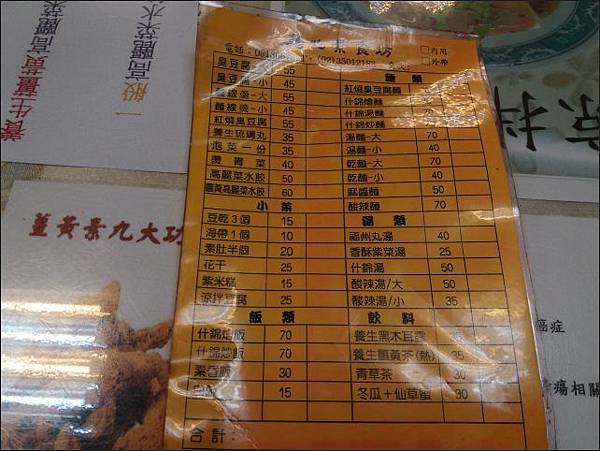 養生薑黃高麗菜水
一般高麗菜水
素食坊
□內用
□外帶
臭豆腐-大 55
臭豆腐-小 45
麵線羹-大 55
麵線羹-小 45
紅燒臭豆腐 55
養生琉璃丸 35
泡菜一份 35
燙青菜 40
高麗菜水餃 50
薑黃高麗菜水餃 60
小菜
豆乾3個 15
海帶1個 10
素肚半個 20
花干 25
紫米糕 15
涼拌豆腐 25
飯類
什錦燴飯 70
什錦炒飯 70
素香飯 30
15
合計:
麵類
紅燒臭豆腐麵
什錦燴麵
什錦湯麵
什錦炒麵
湯麵-大 70
湯麵-小 40
乾麵-大 70
乾麵-小 40
麻醬麵 50
酸辣麵 70
湯類
福州丸湯 40
香酥紫菜湯 25
什錦湯 50
酸辣湯/大 50
酸辣湯/小 35
飲料
養生黑木耳露 35
養生薑黃茶(熱) 35
青草茶 30
冬瓜+仙草蜜 30
薑黃素九大功
癌症
瘍相關